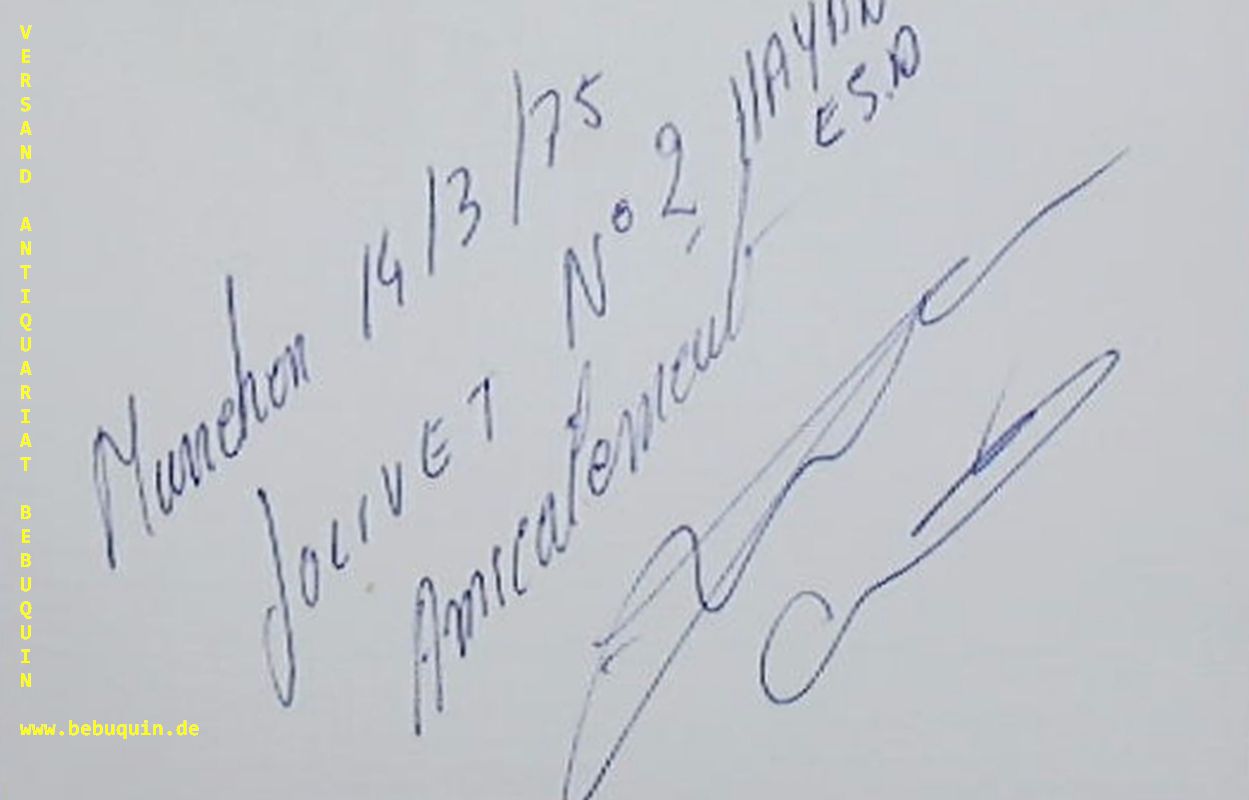 VERSAND ANTIQUARIAT BEBUQUIN
www.bebuquin.de
Munchen 14/3/75
JOLIVET N° 2, HAYDN
ES.D
Amicalement